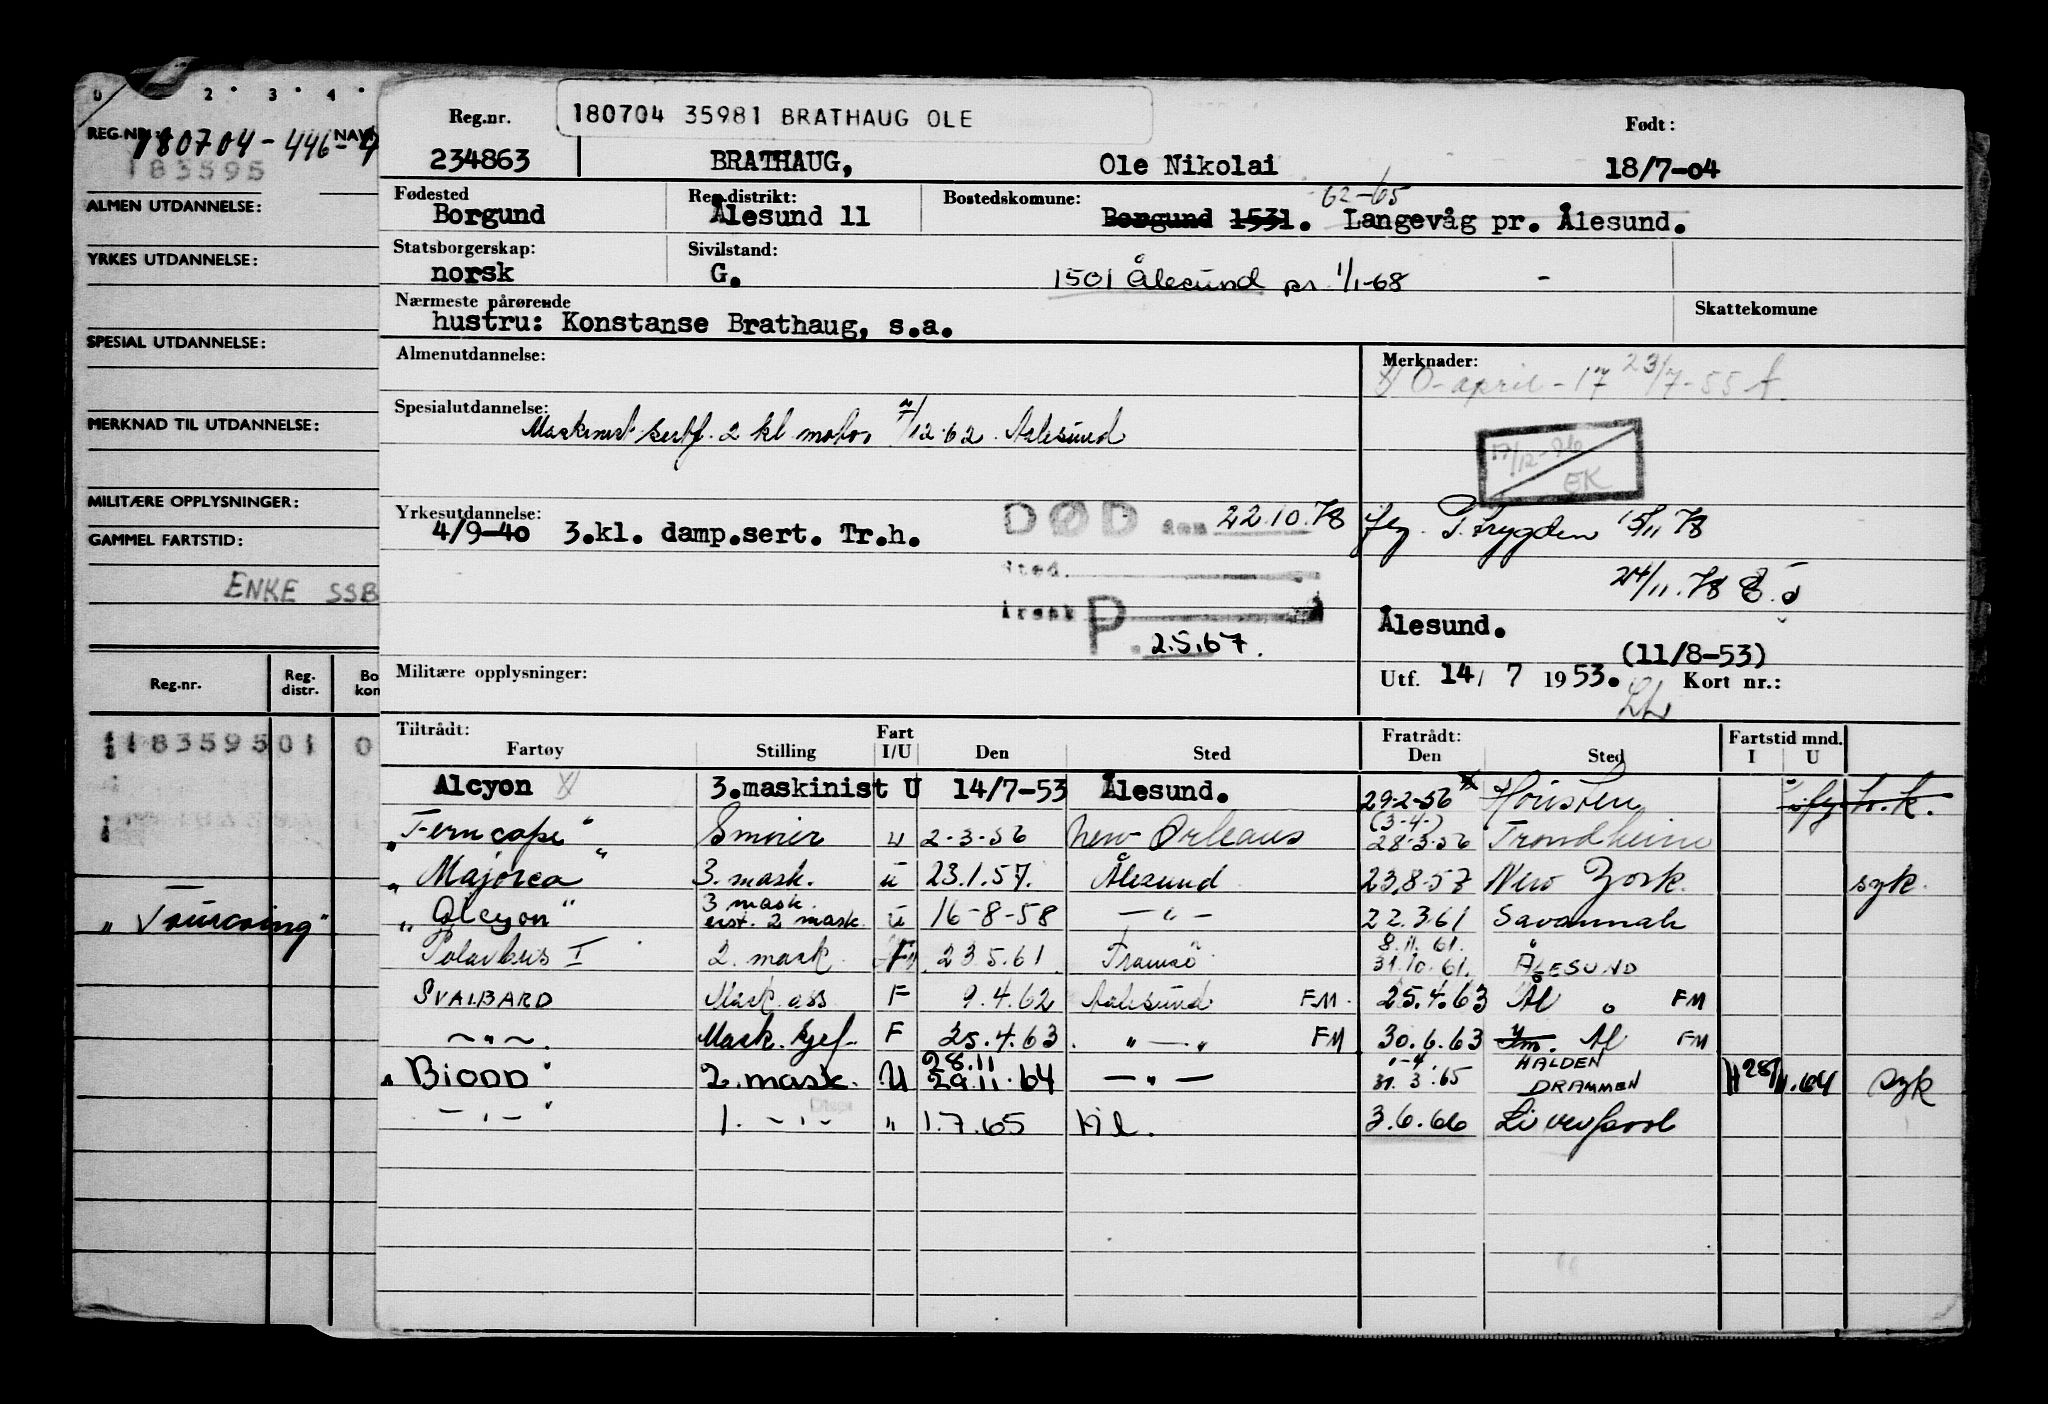 0 2 3 4
REG.NR.: 180704-446 NAVN
183595
ALMEN UTDANNELSE:
YRKES UTDANNELSE:
SPESIAL UTDANNELSE:
MERKNAD TIL UTDANNELSE:
MILITÆRE OPPLYSNINGER:
GAMMEL FARTSTID:
ENKE SSB
Reg.nr. Reg. distr. Bo kom
183595 01 0
"Tourcoing"
Reg.nr. 180704 35981 BRATHAUG OLE Født:
234863 BRATHAUG, Ole Nikolai 18/7-04
Fødested Reg.distrikt: Bostedskomune: 62-65
Borgund Ålesund 11 Borgund 1531. Langevåg pr. Ålesund.
Statsborgerskap: Sivilstand:
norsk G. 1501 Ålesund pr. 1/1-68
Nærmeste pårørende Skattekomune
hustru: Konstanse Brathaug, s.a.
Almenutdannelse: Merknader:
O-april-17 23/7-55
Spesialutdannelse:
Maskinist sertf. 2 kl motor /12.62 Aalesund
17/12-
EK
Yrkesutdannelse:
4/9-40 3.kl. damp.sert. Tr.h.
DØD den 22.10.78 flg. P.trygden 15/11 78
Sted.
24/11.78
Årsak
P. 2.5.67.
Ålesund.
(11/8-53)
Militære opplysninger: Utf. 14/ 7 1953. Kort nr.:
Tiltrådt: Fart Fratrådt: Fartstid mnd.
Fartøy Stilling I/U Den Sted Den Sted I U
Alcyon 3.maskinist U 14/7-53 Ålesund. 29-2-56 Housten
"Ferncape" Smører u 2-3-56 New Orleans (3-4-) 28-3-56 Trondheim
"Majorca 3. mask. u 23.1.57. Ålesund 23.8-57 New York. syk.
"Alcyon" 3 mask. erst. 2 mask. u 16-8-58 — " — 22.3.61 Savannah
Polarbris I 2. mask. F 23.5.61. Tromsö 8.11.61. 31.10.61. ÅLESUND
SVALBARD Mask. ass F 9.4.62 Aalesund FM. 25.4.63 Ål FM
~ " ~. Mask. kjef. F 25.4.63 " — " FM 30.6.63 Ål FM
"BIODD" 2. mask. U 28.11 29.11.64 — " — 31.3.65 HALDEN DRAMMEN 28/11.64 syk
— " — 1. — " — " 1.7.65 Kiel. 3.6.66 Liverpool